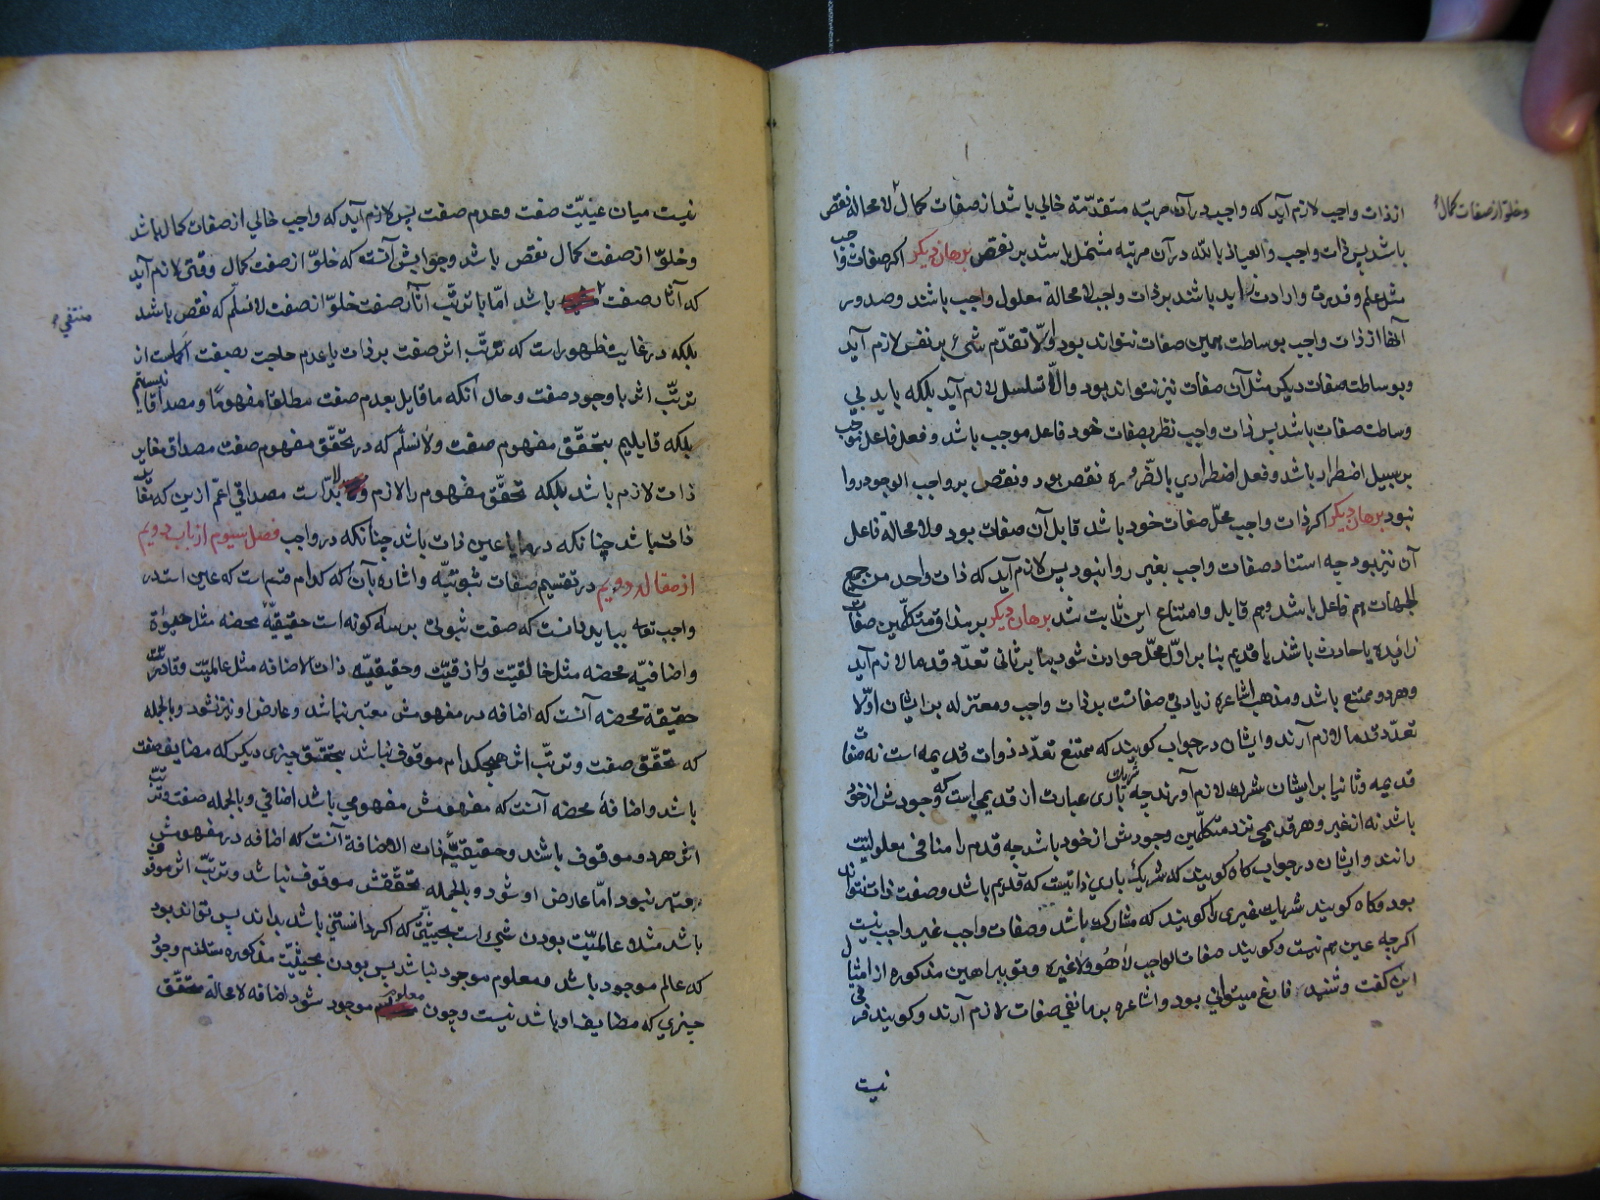 از ذات واجب لازم آید که واجب در آن مرتبه متقدّمه خالی باشد از صفات کمال لامحاله نقص
و خلوّ از صفات کمال
باشد پس ذات واجب والعیاذ بالله در آن مرتبه مشتمل باشد بر نقص برهان دیگر اکر صفات واجب
مثل علم و قدرت و ارادت زاید باشند بر ذات واجب لامحالة معلول واجب باشند و صدور
آنها از ذات واجب بوساطت همین صفات نتواند بود والّا تقدّم شیء بر نفس لازم آید
و بوساطت صفات دیکر مثل آن صفات نیز نتواند بود والّا تسلسل لازم آید بلکه باید بی
وساطت صفات باشد پس ذات واجب نظر بصفات خود فاعل موجب باشد و فعل فاعل موجب
بر سبیل اضطرار باشد و فعل اضطراری بالضّروره نقص بود و نقص بر واجب الوجود روا
نبود برهان دیکر اکر ذات واجب محلّ صفات خود باشد قابل آن صفات بود ولامحاله فاعل
آن نیز بود چه استناد صفات واجب بغیر روا نبود پس لازم آید که ذات واحد من جمیع
الجهات هم فاعل باشد و هم قابل و امتناع این ثابت شد برهان دیکر بر مذاق متکلّمین صفات
زائده یا حادث باشند یا قدیم بنا بر اوّل محلّ حوادث شود بنا بر ثانی تعدّد قدما لازم آید
و هر دو ممتنع باشد و مذهب اشاعره زیادتی صفاتست بر ذات واجب و معتزله بر ایشان اوّلا
تعدّد قدما لازم آرند و ایشان در جواب کویند که ممتنع تعدّد ذوات قدیمه است نه صفات
قدیمه و ثانیا بر ایشان شرک لازم آورند چه شریک باری عبارت از قدیمی است که وجودش از خود
باشد نه از غیر و هر قدیمی نزد متکلّمین وجودش از خود باشد چه قدم را منافی معلولیّت
دانند و ایشان در جواب کاه کویند که شریک باری ذاتیست که قدیم باشد و صفت ذات نتواند
بود و کاه کویند شریک غیری را کویند که مشارک باشد و صفات واجب غیر واجب نیست
اکرچه عین هم نیست و کویند صفات الواجب لا هو ولا غیره و تو ببراهین مذکوره از امثال
این کفت و شنید فارغ میتوانی بود و اشاعره بر ما نفی صفات لازم آرند و کویند فرقی
نیست
نیست میان عینیّت صفت و عدم صفت پس لازم آید که واجب خالی از صفات کمال باشد
و خلوّ از صفت کمال نقص باشد و جوابش آنست که خلوّ از صفت کمال وقتی لازم آید
که آثار صفت باشد امّا با ترتّب آثار صفت خلوّ از صفت لانسلّم که نقص باشد
منتفی
بلکه در غایت ظهور است که ترتّب اثر صفت بر ذات با عدم حاجت بصفت اکملست از
ترتّب اثر با وجود صفت و حال آنکه ما قایل بعدم صفت مطلقا مفهومًا و مصداقا نیستیم
بلکه قایلیم بتحقّق مفهوم صفت ولانسلّم که در تحقّق مفهوم صفت مصداق مغایر
ذات لازم باشد بلکه تحقّق مفهوم را لازم لابدّ است مصداقی اعمّ ازین که مغایر
ذات باشد چنانکه در ما یا عین ذات باشد چنانکه در واجب فصل سیوم از باب دویم
از مقاله دویم در تقسیم صفات ثبوتیّه و اشاره بآن که کدام قسم است که عین است در
واجب تعالی بباید دانست که صفت ثبوتی بر سه کونه است حقیقیّه محضه مثل حیوة
و اضافیّه محضه مثل خالقیّت و رازقیّت و حقیقیّه ذات الاضافه مثل عالمیّت و قادریّت
حقیقیّة محضه آنست که اضافه در مفهومش معتبر نباشد و عارض او نیز نشود و بالجمله
که تحقّق صفت و ترتّب اثر هیچکدام موقوف نباشد بتحقّق چیزی دیکر که مضایف صفت
باشد و اضافۀ محضه آنست که مفهومش مفهومی باشد اضافی و بالجمله صفت و ترتّب
اثر هر دو موقوف باشند و حقیقیّۀ ذات الاضافة آنست که اضافه در مفهومش
معتبر نبود امّا عارض او شود و بالجمله تحقّقش موقوف نباشد و ترتّب اثر موقوف
باشد مثلا عالمیّت بودن شیء است بحیثیّتی که اکر دانستنی باشد بداند پس تواند بود
که عالم موجود باشد و معلوم موجود نباشد پس بودن بحیثیّت مذکوره مستلزم وجود
چیزی که مضایف او باشد نیست و چون معلوم موجود شود اضافه لامحاله متحقّق